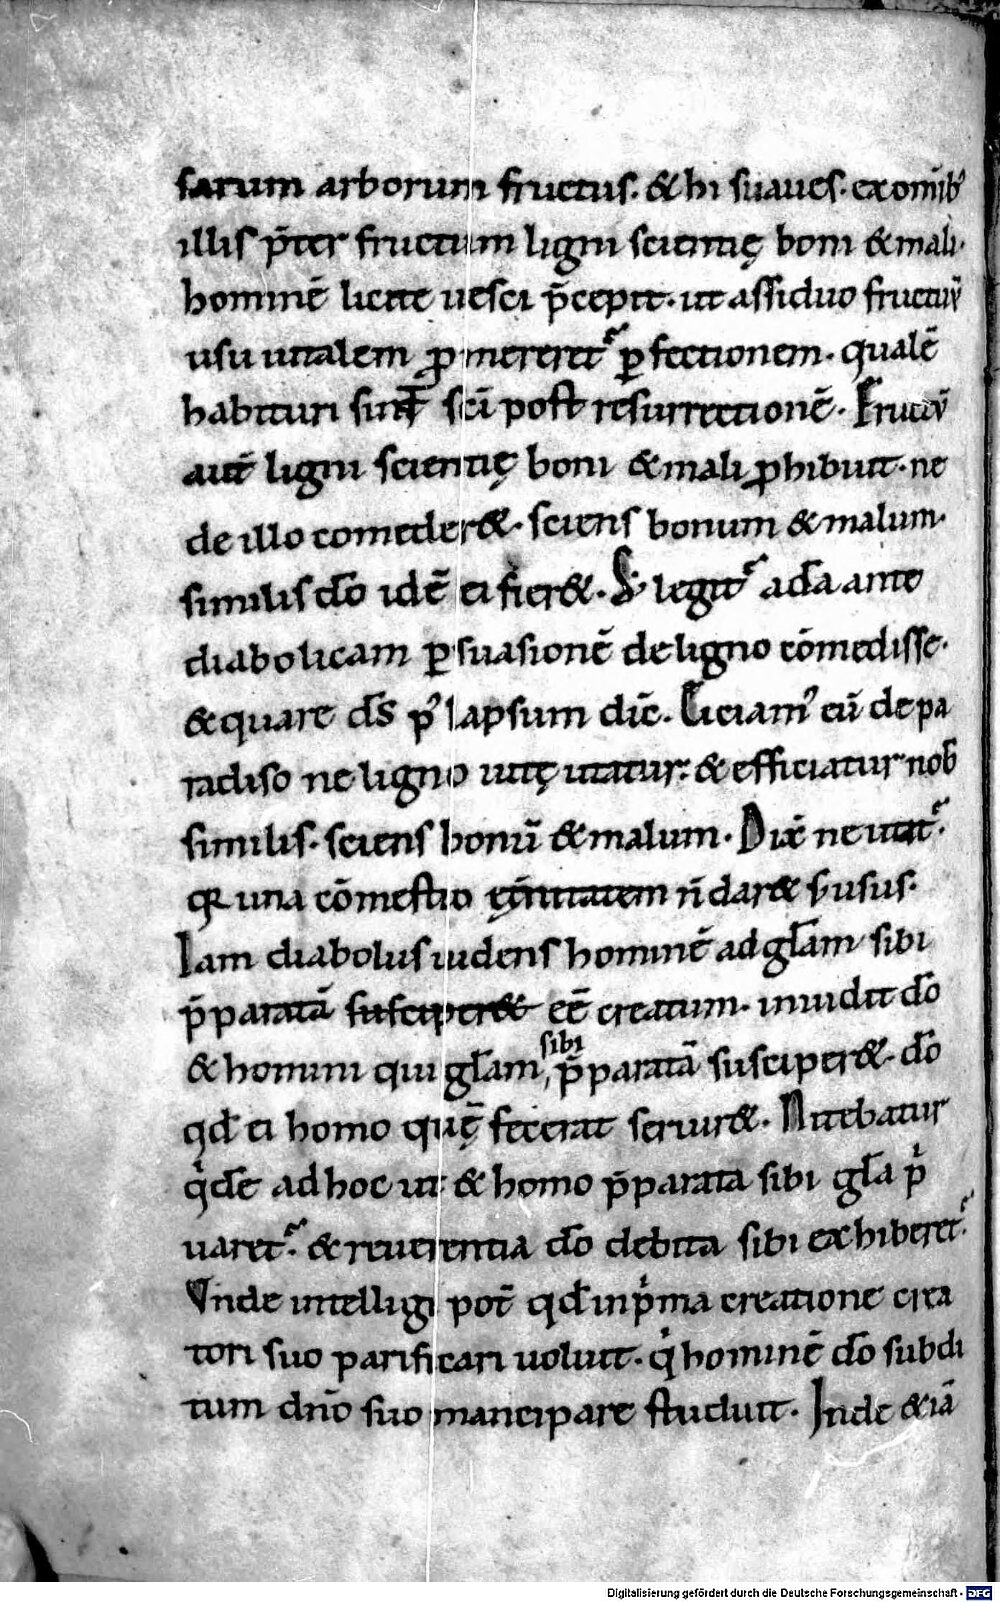 sarum arborum fructus. & hi suaues. ex omīb'
illis p̄ter fructum ligni scientię boni & mali.
hominē licite uesci p̄cepit. ut assiduo fructuū
usu uitalem ꝓmereret᷑ ꝑfectionem. qualē
habituri sint sc̄i post resurrectionē. Fructū
aut̄ ligni scientię boni & mali ꝓhibuit. ne
de illo comeder&. sciens bonum & malum.
similis dō idē ei fier&. S; legit᷑ adā ante
diabolicam ꝑsuasionē de ligno cōmedisse.
& quare ds̄ p' lapsum dic̄. Eiciam' eū de pa
radiso ne ligno uitę utatur. & efficiatur nob̄
similis. sciens bonū & malum. Dix̄ ne utat᷑.
qꝛ una cōmestio ęt̄nitatem n̄ dar& s; usus.
Iam diabolus uidens hominē ad gl̄am sibi
p̄paratā susciper& eē creatum. inuidit dō
& homini qui gl̄am sibi p̄paratā susciper&. dō
qd̄ ei homo quę fecerat seruir&. Nitebatur
qͥde ad hoc ut & homo p̄parata sibi gl̄a pͥ
uaret᷑. & reuerentia dō debita sibi exhiberet᷑.
Vnde intelligi pot̄ qd̄ in pͥma creatione crea
tori suo parificari uoluit. qͥ hominē dō subdi
tum dn̄o suo mancipare studuit. Inde & iā
Digitalisierung gefördert durch die Deutsche Forschungsgemeinschaft - DFG